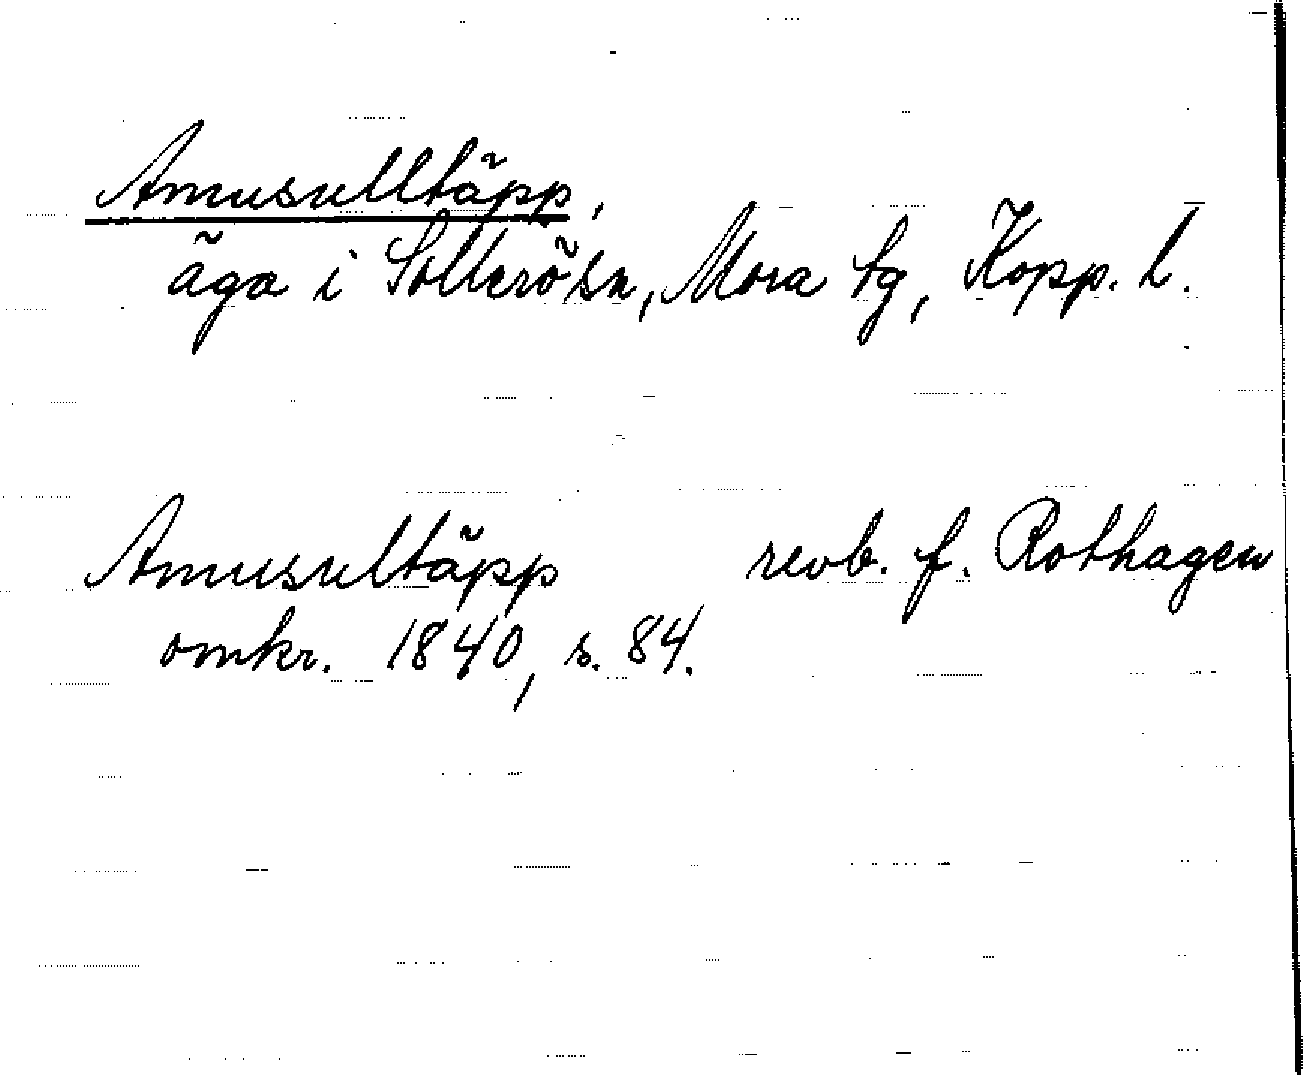 Amusulltäpp,
äga i Sollerö sn, Mora tg, Kopp. l.
Amusultäpp revb. f. Rothagen
omkr. 1840, s. 84.